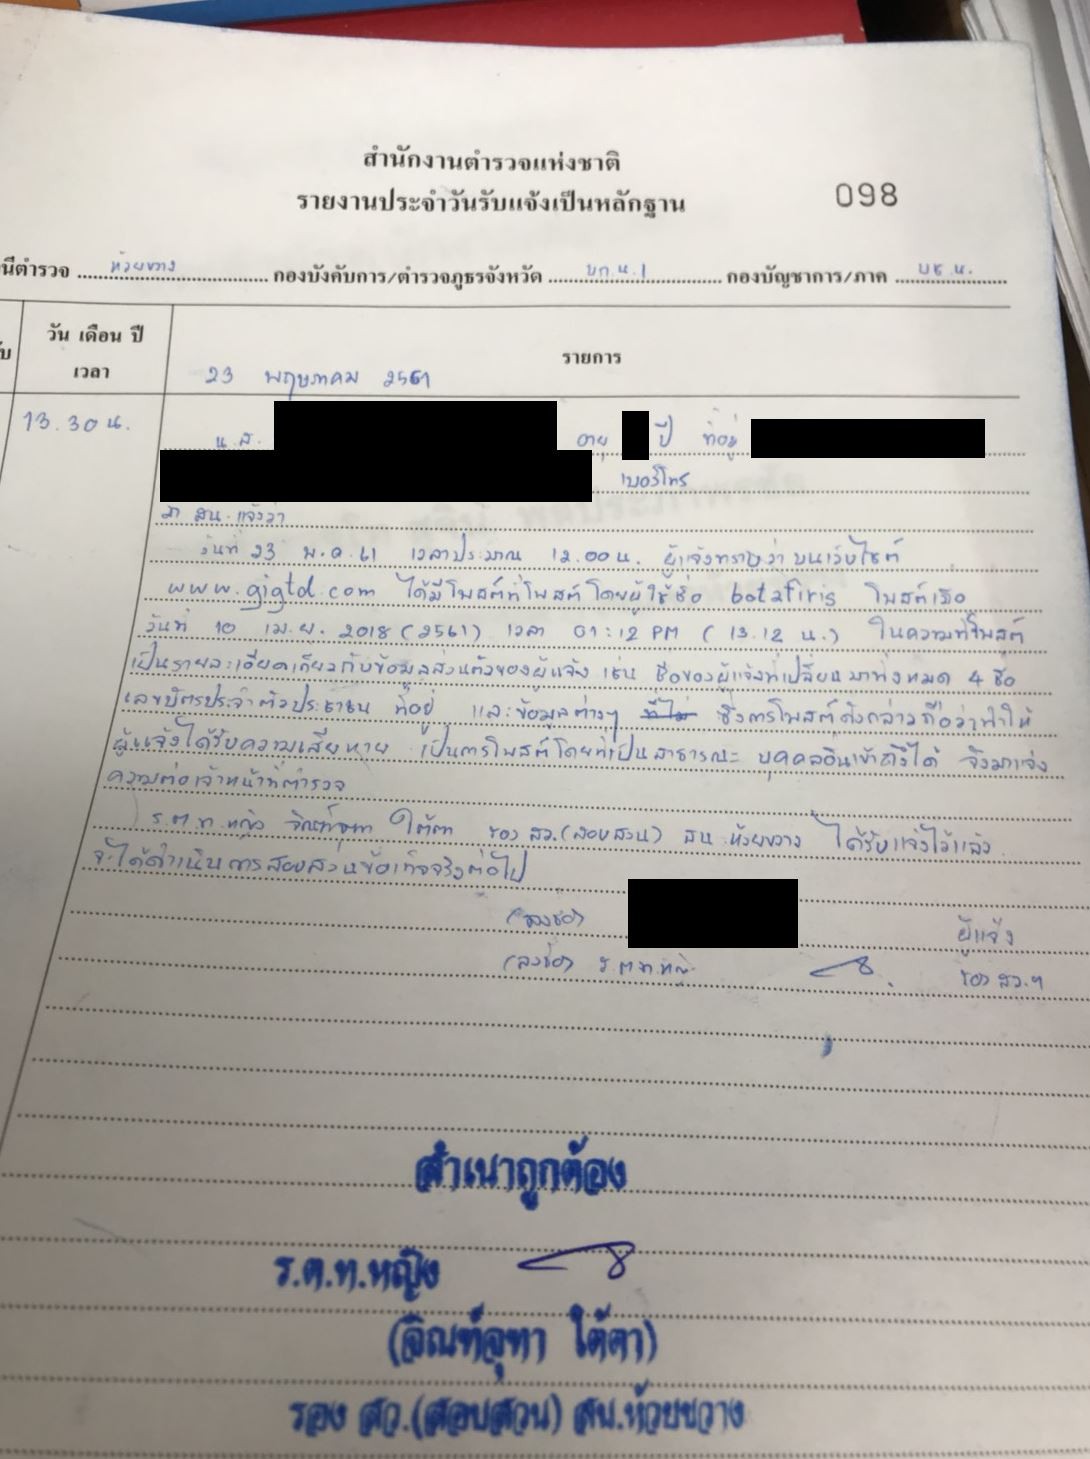 สำนักงานตำรวจแห่งชาติ
รายงานประจำวันรับแจ้งเป็นหลักฐาน 098
นีตำรวจ ห้วยขวาง กองบังคับการ/ตำรวจภูธรจังหวัด บก.น.1 กองบัญชาการ/ภาค บช.น.
วัน เดือน ปี
เวลา
รายการ
23 พฤษภาคม 2561
13.30 น.
น.ส. อายุ ปี ที่อยู่
เบอร์โทร
มา สน. แจ้งว่า
วันที่ 23 พ.ค. 61 เวลาประมาณ 12.00 น. ผู้แจ้งทราบว่า บนเว็บไซต์
www.gigtd.com ได้มีโพสต์ที่โพสต์โดยผู้ใช้ชื่อ botafiris โพสต์เมื่อ
วันที่ 10 เม.ย. 2018 (2561) เวลา 01:12 PM (13.12 น.) ในความที่โพสต์
เป็นรายละเอียดเกี่ยวกับข้อมูลส่วนตัวของผู้แจ้ง เช่น ชื่อของผู้แจ้งที่เปลี่ยนมาทั้งหมด 4 ชื่อ
เลขบัตรประจำตัวประชาชน ที่อยู่ และข้อมูลต่างๆ ซึ่งการโพสต์ดังกล่าวถือว่าทำให้
ผู้แจ้งได้รับความเสียหาย เป็นการโพสต์โดยที่เป็นสาธารณะ บุคคลอื่นเข้าถึงได้ จึงมาแจ้ง
ความต่อเจ้าหน้าที่ตำรวจ
ร.ต.ท.หญิง จิณห์จุฑา ใต้ตา รอง สว.(สอบสวน) สน.ห้วยขวาง ได้รับแจ้งไว้แล้ว
จะได้ดำเนินการสอบสวนข้อเท็จจริงต่อไป
(ลงชื่อ) ผู้แจ้ง
(ลงชื่อ) ร.ต.ท.หญิง รอง สว.ฯ
สำเนาถูกต้อง
ร.ต.ท.หญิง
(จิณห์จุฑา ใต้ตา)
รอง สว.(สอบสวน) สน.ห้วยขวาง